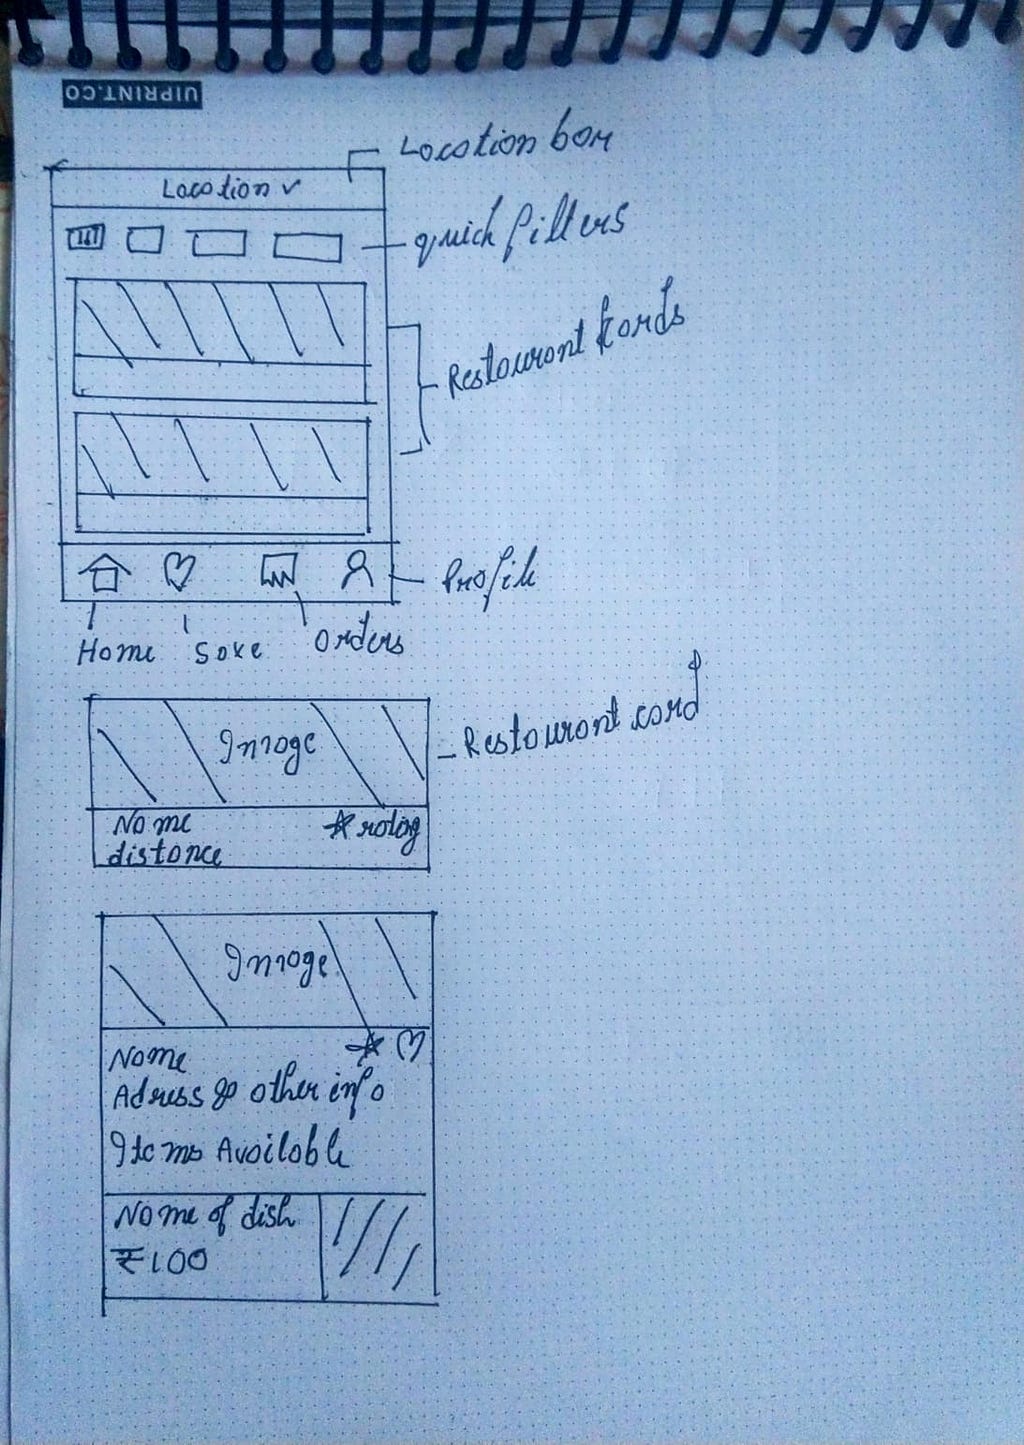 UIPRINT.CO
Location box
Location
quick filters
Restaurant Kards
Profile
Home
Save
Orders
Image
Restaurant card
Name
rating
distance
Image
Name
Adress & other info
Items Available
Name of dish
₹100